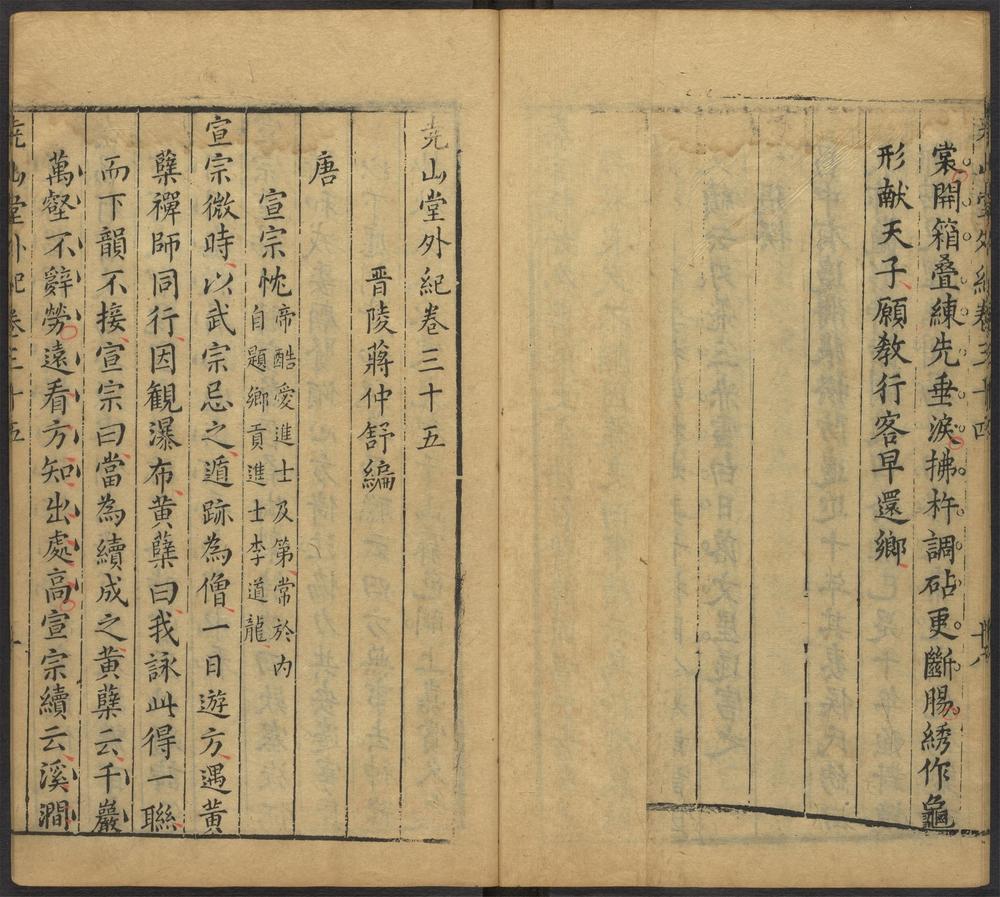 堯山堂外紀卷三十四
棠開箱叠練先垂淚拂杵調砧更斷腸綉作龜
形献天子願教行客早還鄉
堯山堂外紀卷三十五
晋陵蔣仲舒編
唐
宣宗忱帝酷愛進士及第常於內
自題鄉貢進士李道龍
宣宗微時以武宗忌之遁跡為僧一日遊方遇黃
蘗禪師同行因観瀑布黃蘗曰我詠此得一聯
而下韻不接宣宗曰當為續成之黃蘗云千巖
萬壑不辭勞遠看方知出處高宣宗續云溪澗
堯山堂外紀卷三十五 一